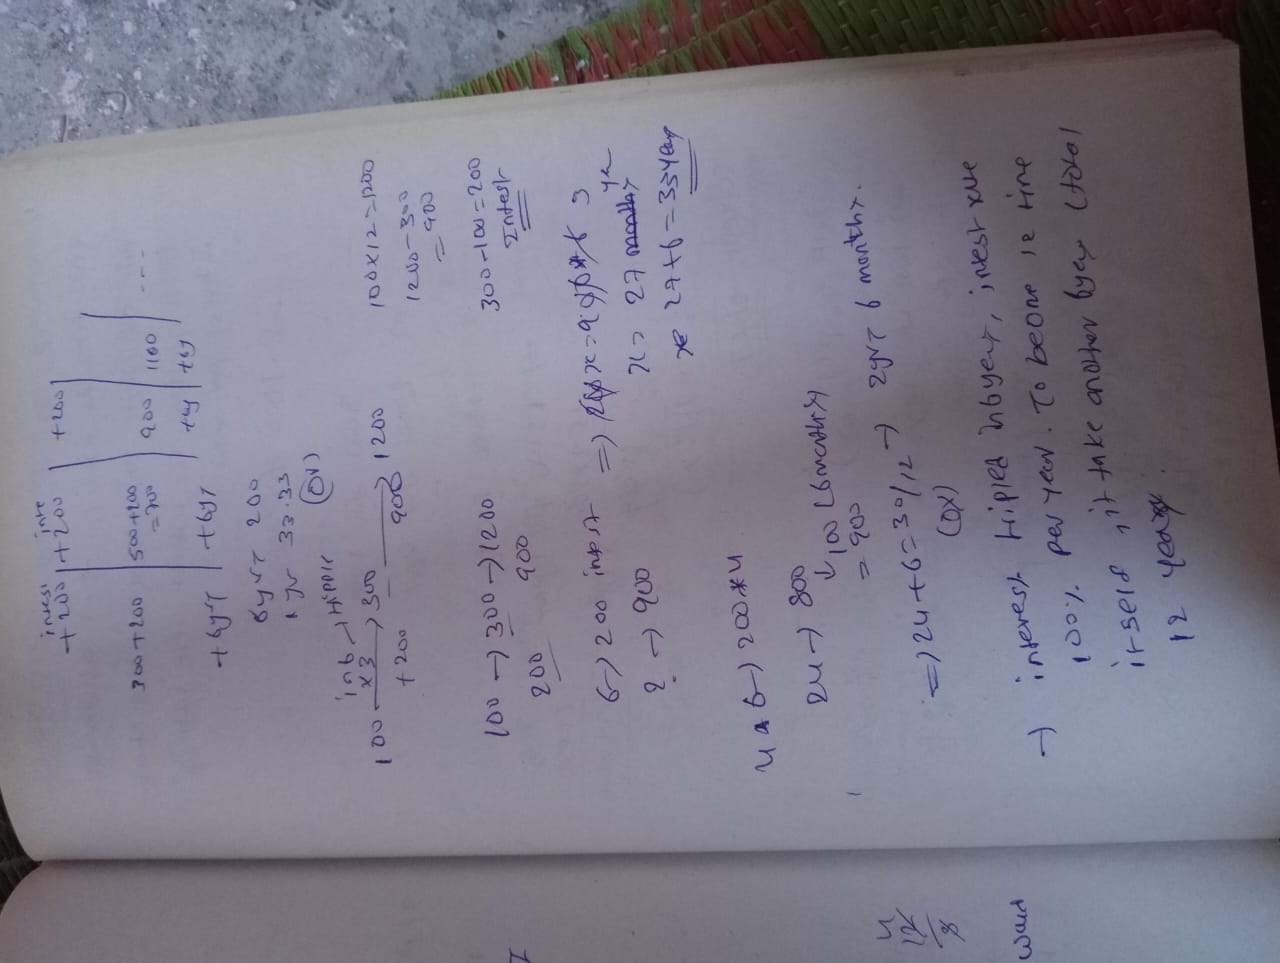 intrest inte
+200 | +200 | +200
300+200 | 500+200 =700 | 900 | 1100 | ---
+6yr | +6yr | +6y | +6y
6yrs 200
1 yr 33.33
(or)
in 6 → tripple
100 x3 → 300 900 → 1200
+200
100x12=1200
1200-300
= 900
100 → 300 → 1200
200 900
300-100=200
Intest
6 → 200 inpst ⇒
? → 900
x = 27 yr
27+6=33 year
4 x 6 → 200*4
24 → 800
↓ 100 (6 months)
= 900
⇒ 24+6=30/12 → 2yrs 6 months.
(or)
→ interest tripled in 6 year, intest rate
100% per year. To become 12 time
itself, it take another 6 year (total
12 years
4
12
Waid